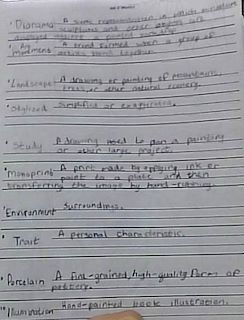 Diorama A scenic representation in which miniature sculptures and other objects are displayed against a painted backdrop.
Art Movement A trend formed when a group of artists band together.
Landscape A drawing or painting of mountains, trees, or other natural scenery.
Stylized Simplified or exaggerated.
Study A drawing used to plan a painting
or other large project.
Monoprint A print made by applying ink or
paint to a plate and then
transferring the image by hand-rubbing.
Environment Surroundings.
Trait A personal characteristic.
Porcelain A fine-grained, high-quality form of
pottery.
Illumination Hand-painted book illustration.